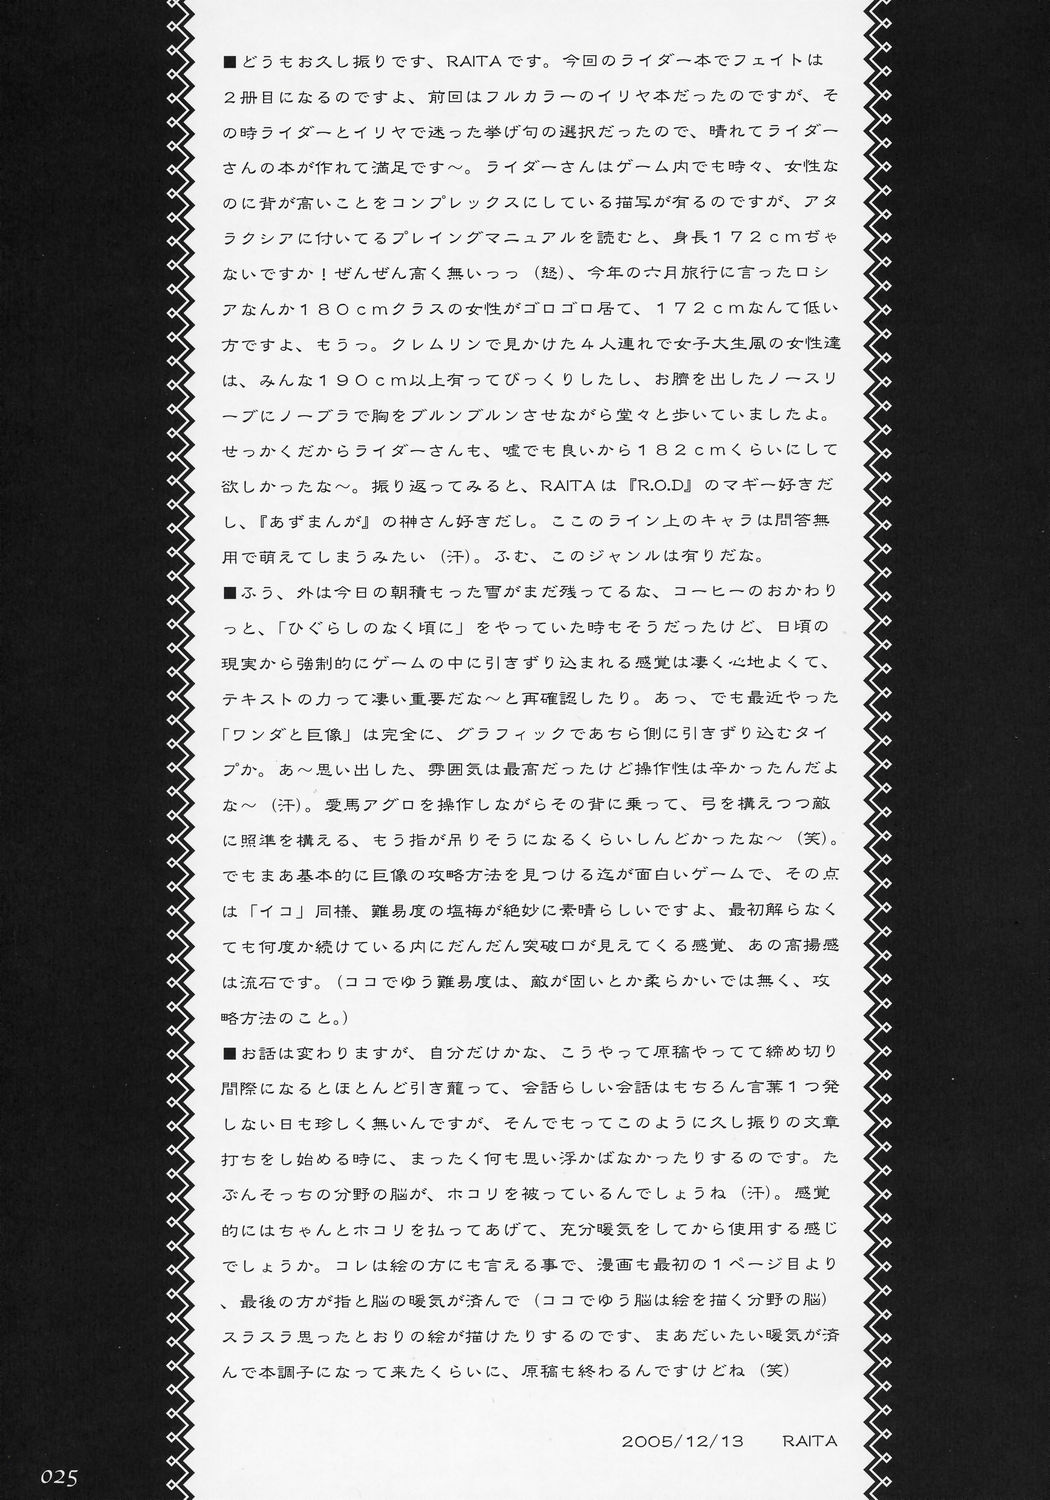 ■どうもお久し振りです、RAITAです。今回のライダー本でフェイトは
２冊目になるのですよ、前回はフルカラーのイリヤ本だったのですが、そ
の時ライダーとイリヤで迷った挙げ句の選択だったので、晴れてライダー
さんの本が作れて満足です～。ライダーさんはゲーム内でも時々、女性な
のに背が高いことをコンプレックスにしている描写が有るのですが、アタ
ラクシアに付いてるプレイングマニュアルを読むと、身長１７２ｃｍぢゃ
ないですか！ぜんぜん高く無いっっ（怒）、今年の六月旅行に言ったロシ
アなんか１８０ｃｍクラスの女性がゴロゴロ居て、１７２ｃｍなんて低い
方ですよ、もうっ。クレムリンで見かけた４人連れで女子大生風の女性達
は、みんな１９０ｃｍ以上有ってびっくりしたし、お臍を出したノースリ
ーブにノーブラで胸をブルンブルンさせながら堂々と歩いていましたよ。
せっかくだからライダーさんも、嘘でも良いから１８２ｃｍくらいにして
欲しかったな～。振り返ってみると、RAITAは『R.O.D』のマギー好きだ
し、『あずまんが』の榊さん好きだし。ここのライン上のキャラは問答無
用で萌えてしまうみたい（汗）。ふむ、このジャンルは有りだな。
■ふう、外は今日の朝積もった雪がまだ残ってるな、コーヒーのおかわり
っと、「ひぐらしのなく頃に」をやっていた時もそうだったけど、日頃の
現実から強制的にゲームの中に引きずり込まれる感覚は凄く心地よくて、
テキストの力って凄い重要だな～と再確認したり。あっ、でも最近やった
「ワンダと巨像」は完全に、グラフィックであちら側に引きずり込むタイ
プか。あ～思い出した、雰囲気は最高だったけど操作性は辛かったんだよ
な～（汗）。愛馬アグロを操作しながらその背に乗って、弓を構えつつ敵
に照準を構える、もう指が吊りそうになるくらいしんどかったな～（笑）。
でもまあ基本的に巨像の攻略方法を見つける迄が面白いゲームで、その点
は「イコ」同様、難易度の塩梅が絶妙に素晴らしいですよ、最初解らなく
ても何度か続けている内にだんだん突破口が見えてくる感覚、あの高揚感
は流石です。（ココでゆう難易度は、敵が固いとか柔らかいでは無く、攻
略方法のこと。）
■お話は変わりますが、自分だけかな、こうやって原稿やってて締め切り
間際になるとほとんど引き籠って、会話らしい会話はもちろん言葉１つ発
しない日も珍しく無いんですが、そんでもってこのように久し振りの文章
打ちをし始める時に、まったく何も思い浮かばなかったりするのです。た
ぶんそっちの分野の脳が、ホコリを被っているんでしょうね（汗）。感覚
的にはちゃんとホコリを払ってあげて、充分暖気をしてから使用する感じ
でしょうか。コレは絵の方にも言える事で、漫画も最初の１ページ目より
、最後の方が指と脳の暖気が済んで（ココでゆう脳は絵を描く分野の脳）
スラスラ思ったとおりの絵が描けたりするのです、まあだいたい暖気が済
んで本調子になって来たくらいに、原稿も終わるんですけどね（笑）
2005/12/13　RAITA
025